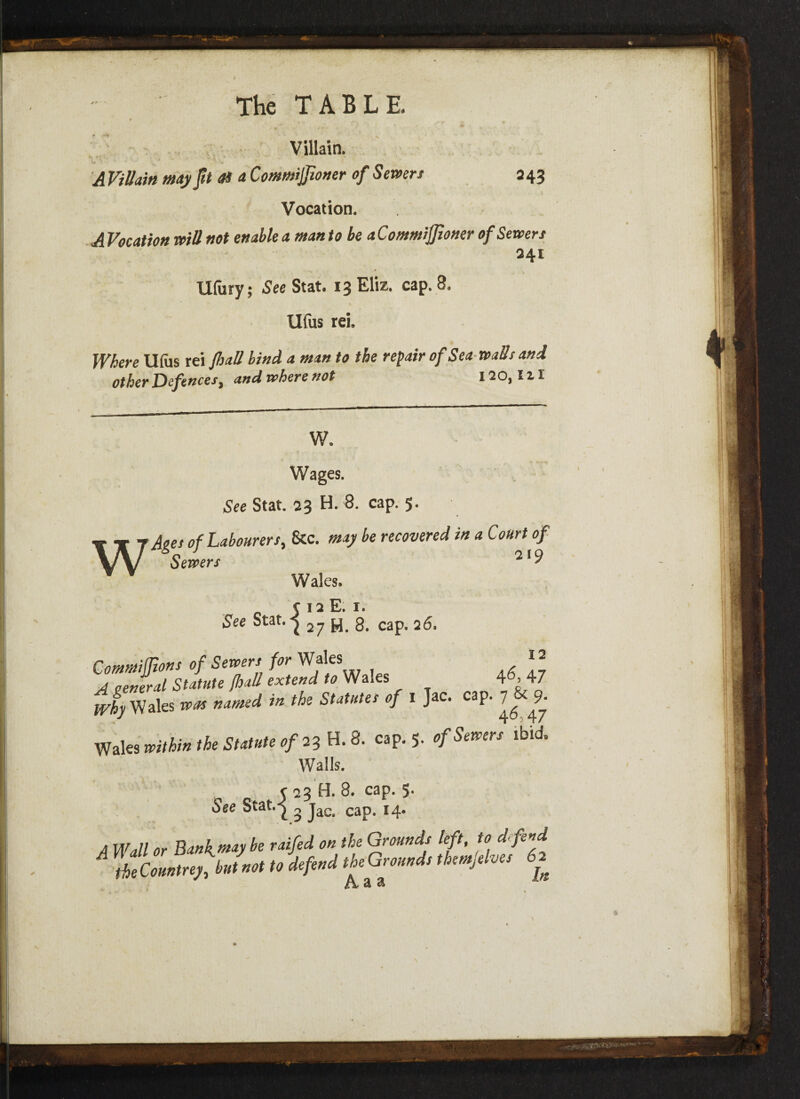 The TABLE.
Villain.
A Villain may ſit as a Commiſſioner of Sewers 243
Vocation.
A Vocation will not enable a man to be a Commiſſioner of Sewers
241
Uſury; See Stat. 13 Eliz. cap. 8.
Uſus rei.
Where Uſus rei ſhall bind a man to the repair of Sea-walls and
other Defences, and where not 120, 121
W.
Wages.
See Stat. 23 H. 8. cap. 5.
WAges of Labourers, &c. may be recovered in a Court of
Sewers 219
Wales.
See Stat. { 12 E. 1.
27 H. 8. cap. 26.
Commiſſions of Sewers for Wales 12
A general Statute ſhall extend to Wales 46, 47
Why Wales was named in the Statutes of 1 Jac. cap. 7 & 9.
46, 47
Wales within the Statute of 23 H. 8. cap. 5. of Sewers ibid.
Walls.
See Stat. { 23 H. 8. cap. 5.
3 Jac. cap. 14.
A Wall or Bank may be raiſed on the Grounds left, to defend
the Countrey, but not to defend the Grounds themſelves 62
A a a In